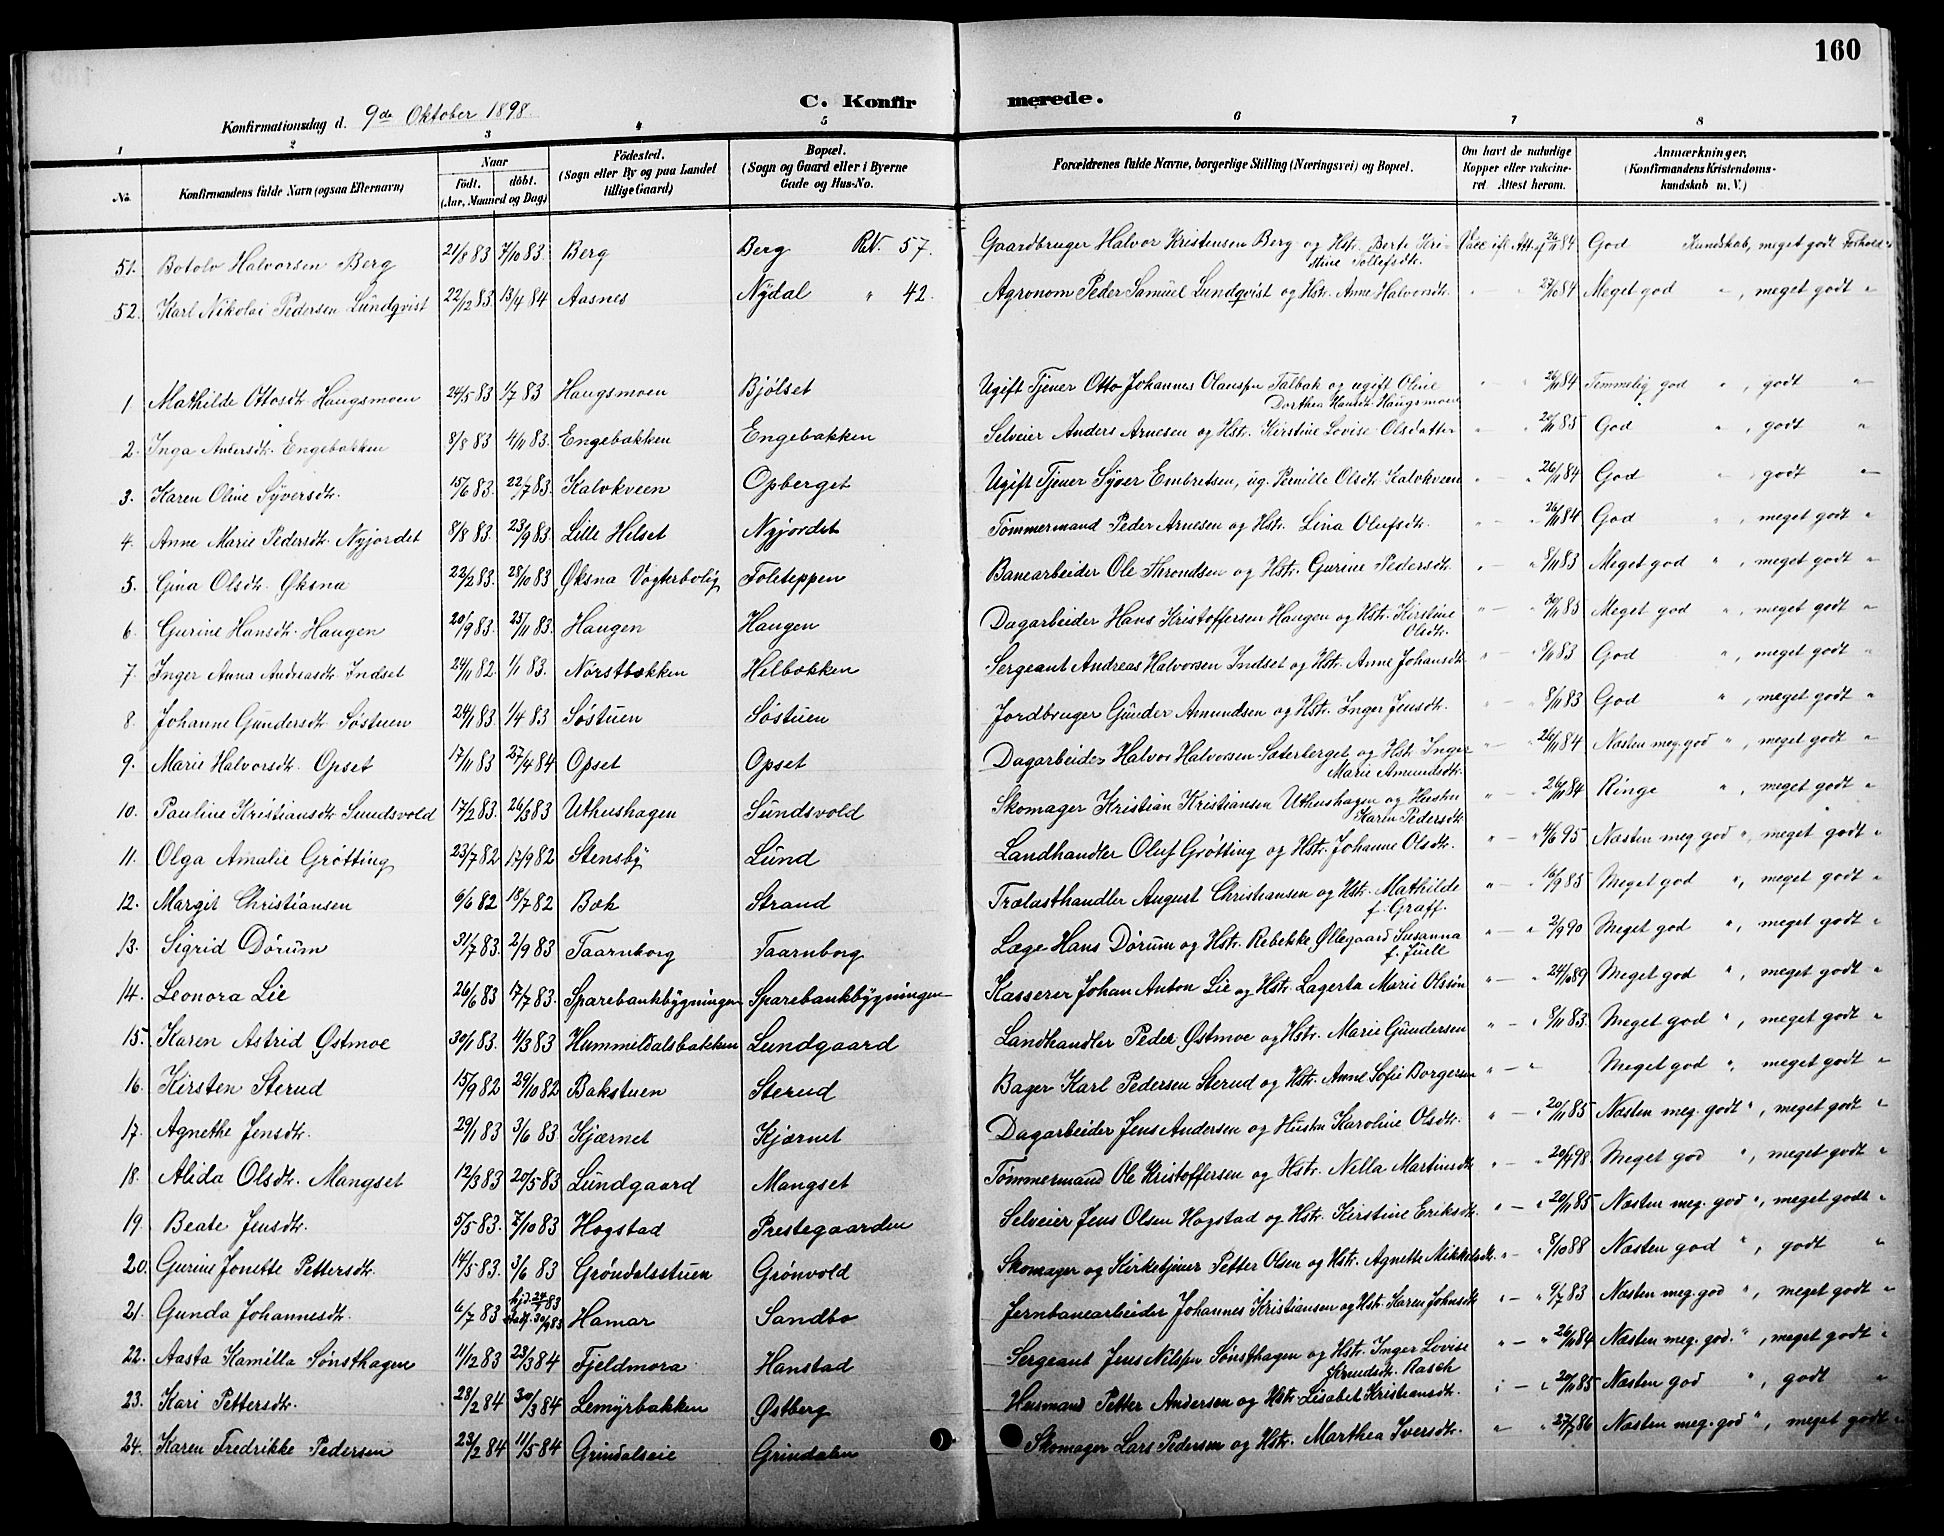 160
C. Konfirmerede.
Konfirmationsdag d. 9de Oktober 1898.
1 2 3 4 5 6 7 8
No. Konfirmandens fulde Navn (ogsaa Efternavn) Naar født. døbt. (Aar, Maaned og Dag) Fødested. (Sogn eller By og paa Landet tillige Gaard) Bopæl. (Sogn og Gaard eller i Byerne Gade og Hus-No. Forældrenes fulde Navne, borgerlige Stilling (Næringsvei) og Bopæl. Om havt de naturlige Kopper eller vakcineret Attest herom. Anmærkninger. (Konfirmandens Kristendomskundskab m. V.)
51. Botolv Halvorsen Berg 21/8 83 7/10 83. Berg Berg 57. Gaardbruger Halvor Kristensen Berg og Hstr. Berte Kristine Tollefsdtr. Vacc. ifl. Att. af 26/11 84 God Kundskab, meget godt Forhold
52. Karl Nikolai Pedersen Lundqvist 22/12 83 13/4 84 Aasnes Nydal " 42. Agronom Peder Samuel Lundqvist og Hstr. Anne Halvorsdtr. " 27/10 84 Meget god " , meget godt "
1 Mathilde Ottosdtr. Haugsmoen 24/5 83 1/7 83 Haugsmoen Bjølset Ugift Tjener Otto Johannes Olaussen Talbak og ugift Oline Dorthea Hansdtr. Haugsmoen " 26/11 84 Temmelig god " , godt "
2. Inga Andersdtr. Engebakken 8/8 83 4/11 83. Engebakken Engebakken Selveier Anders Arnesen og Hstr. Kirstine Lovise Olsdatter " 20/11 85 God " , godt "
3. Karen Oline Syversdtr. 15/6 83. 22/7 83. Kalvkveen Opberget Ugift Tjener Syver Embretsen, ug. Pernille Olsdtr. Kalvkveen " 26/11 84 God " godt "
4. Anne Marie Pedersdtr. Nyjordet 8/8 83. 23/9 83. Lille Helset Nyjordet Tømmermand Peder Arnesen og Hstr. Lina Olufsdtr. " 26/11 84 God " , meget godt "
5. Gina Olsdtr. Øksna 22/2 83. 28/10 83 Øksna Vogterbolig Foleteppen Banearbeider Ole Throndsen og Hstr. Gurine Pedersdtr. " 8/11 83 Meget god " , meget godt "
6. Gurine Hansdtr. Haugen 20/9 83. 25/11 83. Haugen Haugen Dagarbeider Hans Kristoffersen Haugen og Hstr. Kirstine Olsdtr. " 20/11 85 Meget god " , meget godt "
7. Inger Anna Andreasdtr. Indset 24/11 82. 1/1 83. Nørstbækken Helbækken Sergeant Andreas Halvorsen Indset og Hstr. Anne Johansdtr. " 8/11 83 God " , meget godt "
8. Johanne Gundersdtr. Søstuen 24/1 83. 1/4 83 Søstuen Søstuen Jordbruger Gunder Amundsen og Hstr. Inger Jensdtr. " 8/11 83 God " , meget godt "
9. Marie Halvorsdtr. Opset 17/11 83 27/4 84 Opset Opset Dagarbeider Halvor Halvorsen Sæterberget og Hstr. Inger Marie Amundsdtr. " 26/11 84 Næsten meg. god " , meget godt "
10. Pauline Kristiansdtr. Sundsvold 17/2 83. 26/3 83 Uthushagen Sundsvold Skomager Kristian Kristiansen Uthushagen og Hustru Karen Pedersdtr. " 26/11 84 Ringe " , meget godt "
11. Olga Amalie Grøtting 23/7 82 17/9 82 Stensby Lund Landhandler Oluf Grøtting og Hstr. Johanne Olsdtr. " 4/6 95 Næsten meg. god ", meget godt "
12. Margit Christiansen 9/6 82 18/7 82 Bæk Strand Trælasthandler August Christiansen og Hstr. Mathilde f. Graff. " 16/9 85 Meget god ", meget godt "
13. Sigrid Dørum 31/7 83. 2/9 83 Taarnborg Taarnborg Læge Hans Dørum og Hstr. Rebekke Øllegaard Susanna f. Juell " 2/9 90 Meget god ", meget godt "
14. Leonora Lie 26/6 83 17/7 83. Sparebankbygningen Sparebankbygningen Kasserer Johan Anton Lie og Hstr. Lagerta Marie Olsson " 24/10 89 Meget god ", meget godt "
15. Karen Astrid Østmoe 30/1 83. 4/3 83 Hummeldalsbakken Lundgaard Landhandler Peder Østmoe og Hstr. Marie Gundersen " 8/11 83. Meget god ", meget godt "
16. Kirsten Sterud 15/9 82 29/10 82 Bakstuen Sterud Bager Karl Pedersen Sterud og Hstr. Anne Sofie Borgersen " Meget god ", meget godt "
17. Agnethe Jensdtr. 29/1 83 3/6 83 Kjærnet Kjærnet Dagarbeider Jens Andersen og Hustru Karoline Olsdtr. " 20/11 85 Næsten meg. godt ", meget godt "
18. Alida Olsdtr. Mangset 12/3 83 20/5 83 Lundgaard Mangset Tømmermand Ole Kristoffersen og Hstr. Nella Martinsdtr. " Meget god ", meget godt "
19. Beate Jensdtr. 5/5 83. 7/10 83 Hogstad Prestegaarden Selveier Jens Olsen Hogstad og Hstr. Kirstine Eriksdtr. " 20/11 85 Næsten meg. god ", meget godt "
20. Gurine Jonette Pettersdtr. 14/5 83. 3/6 83 Grøndalsstuen Grønvold Skomager og Kirketjener Petter Olsen og Hstr. Agnette Mikkelsdtr. " 8/10 88 Næsten god ", godt "
21. Gunda Johannesdtr. 6/7 83 hjd. 24/7 83 30/9 83 Hamar Sandbo Jernbanearbeider Johannes Kristiansen og Hstr. Karen Johnsdtr. " 9/7 83 Næsten meg. god ", meget godt "
22. Aasta Kamilla Sønsthagen 11/12 83 23/3 84 Fjeldmora Hanstad Sergeant Jens Nilssen Sønsthagen og Hstr. Inger Lovise Knudsdtr. Rasch " 26/11 84 Næsten meg. god. ", meget godt "
23. Kari Pettersdtr. 28/2 84 30/3 84 Lemyrbakken Østberg Husmand Petter Andersen og Hstr. Lisabet Kristiansdtr. " 20/11 85 Næsten god ", godt "
24. Karen Fredrikke Pedersen 23/2 84 11/5 84 Grindalseie Grindalen Skomager Lars Pedersen og Hstr. Marthea Iversdtr. " 27/7 86 Næsten meg. god ", meget godt "